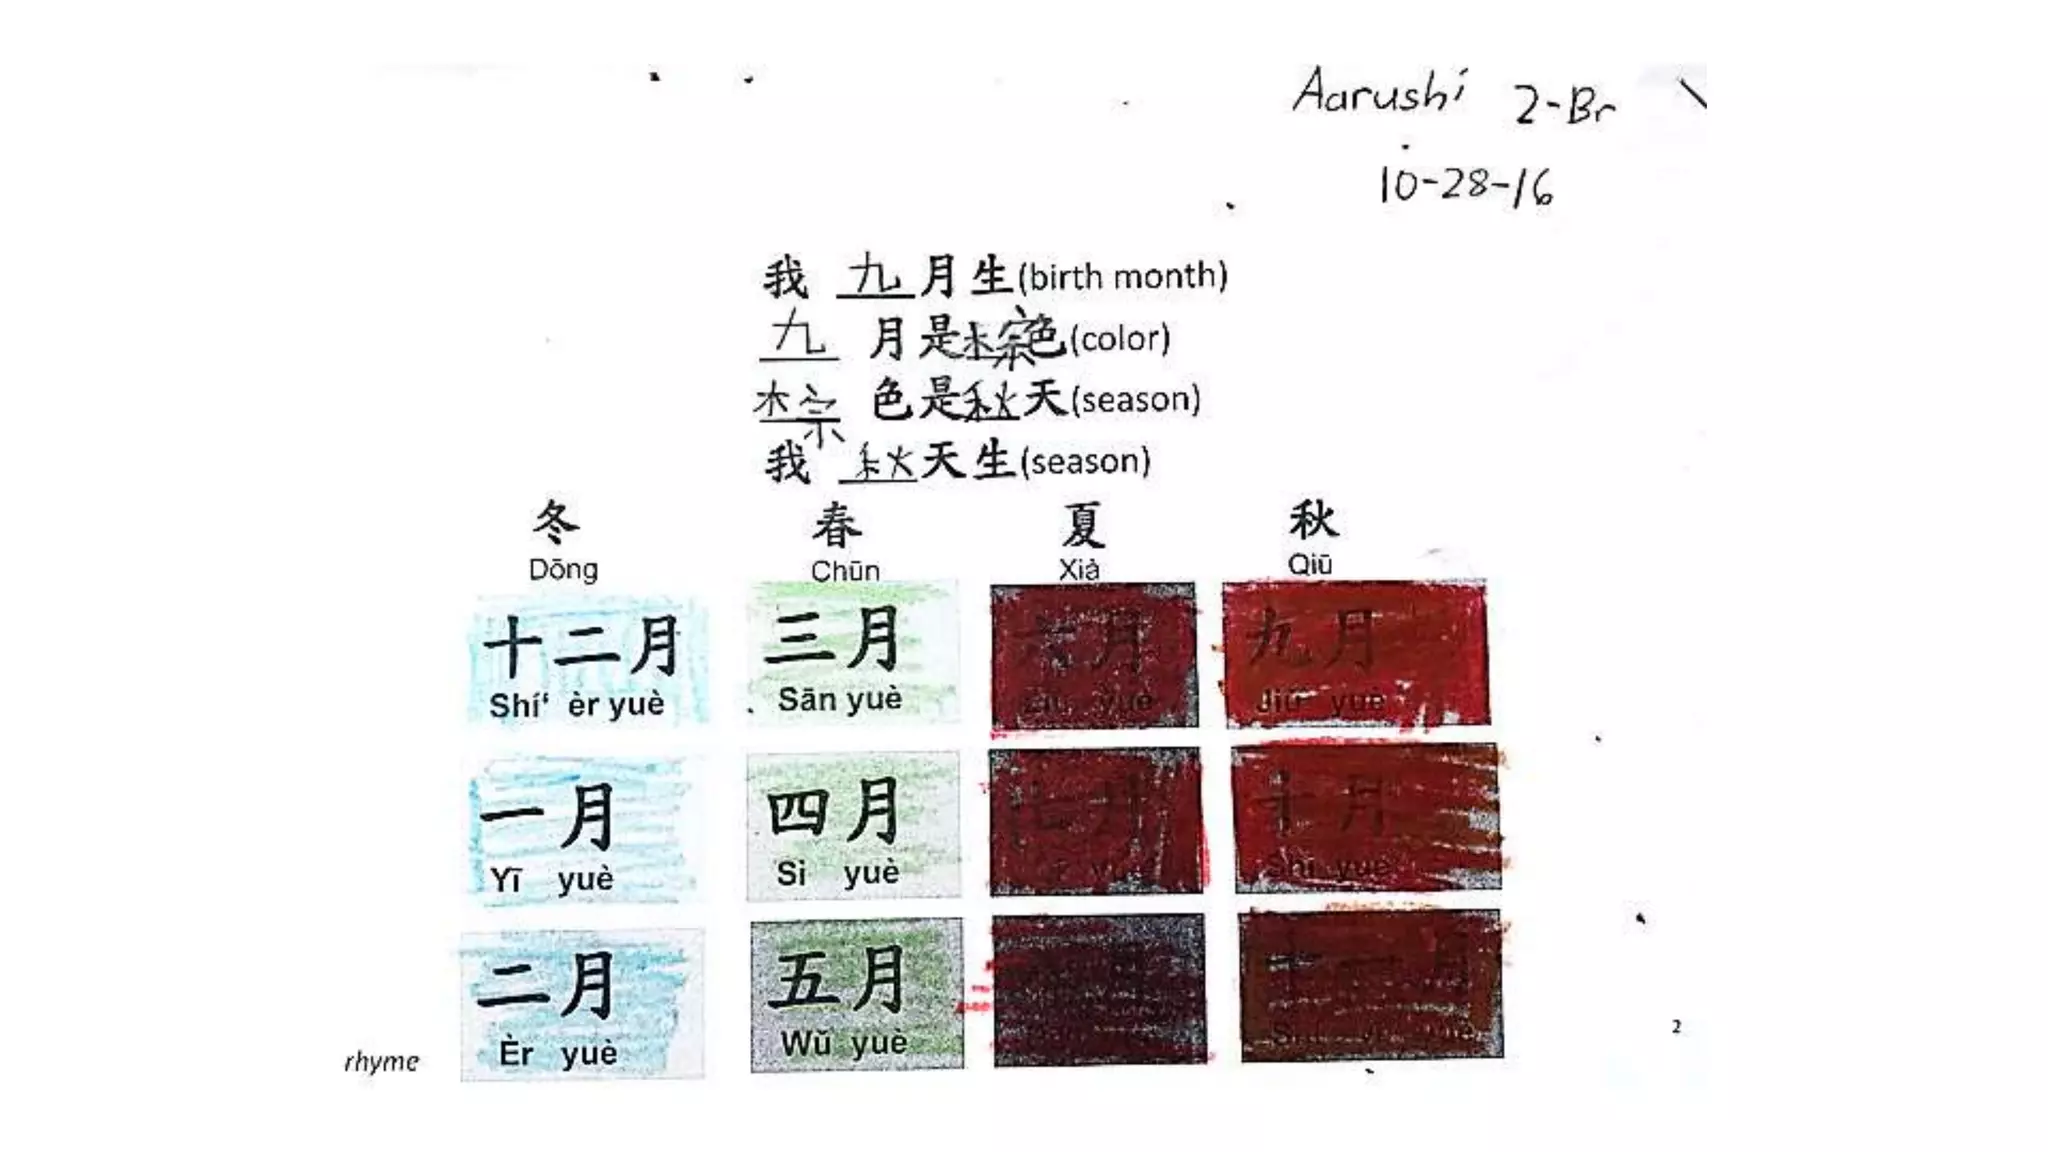 Aarushi 2-Br
10-28-16
我 九 月生(birth month)
九 月是棕色(color)
棕 色是秋天(season)
我 秋天生(season)
冬 春 夏 秋
Dōng Chūn Xià Qiū
十二月 三月 六月 九月
Shí‘ èr yuè Sān yuè Liù yuè Jiǔ yuè
一月 四月 七月 十月
Yī yuè Sì yuè yuè Shí yuè
二月 五月 十一月
Èr yuè Wǔ yuè
rhyme
2